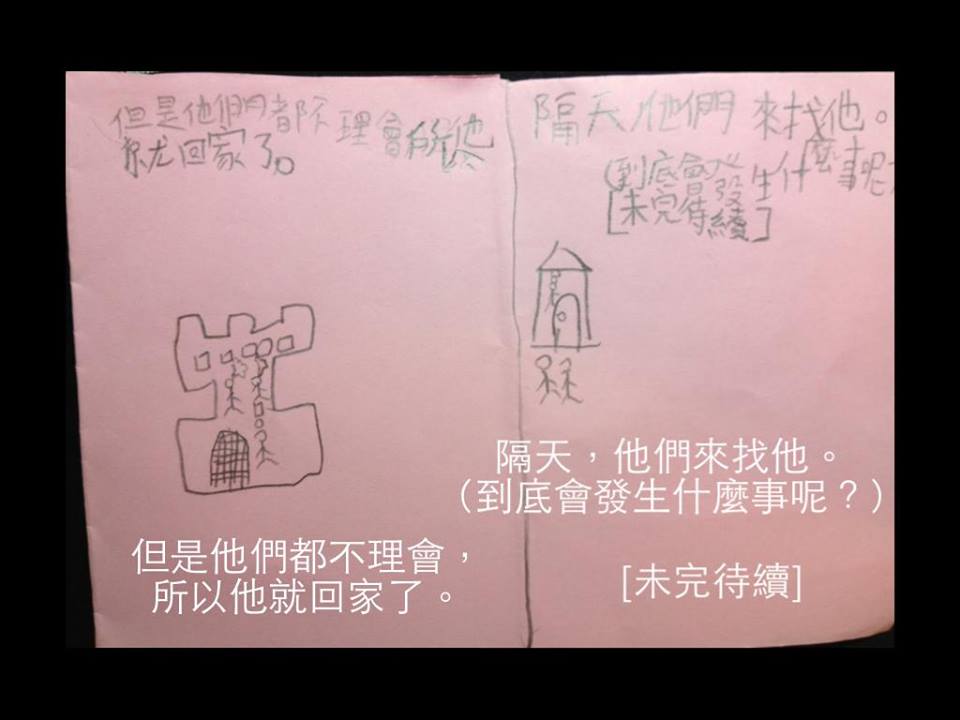 但是他們都不理會所以他
就回家了。
但是他們都不理會，
所以他就回家了。
隔天他們來找他。
(到底會發生什麼事呢
[未完待續]
隔天，他們來找他。
（到底會發生什麼事呢？）
[未完待續]